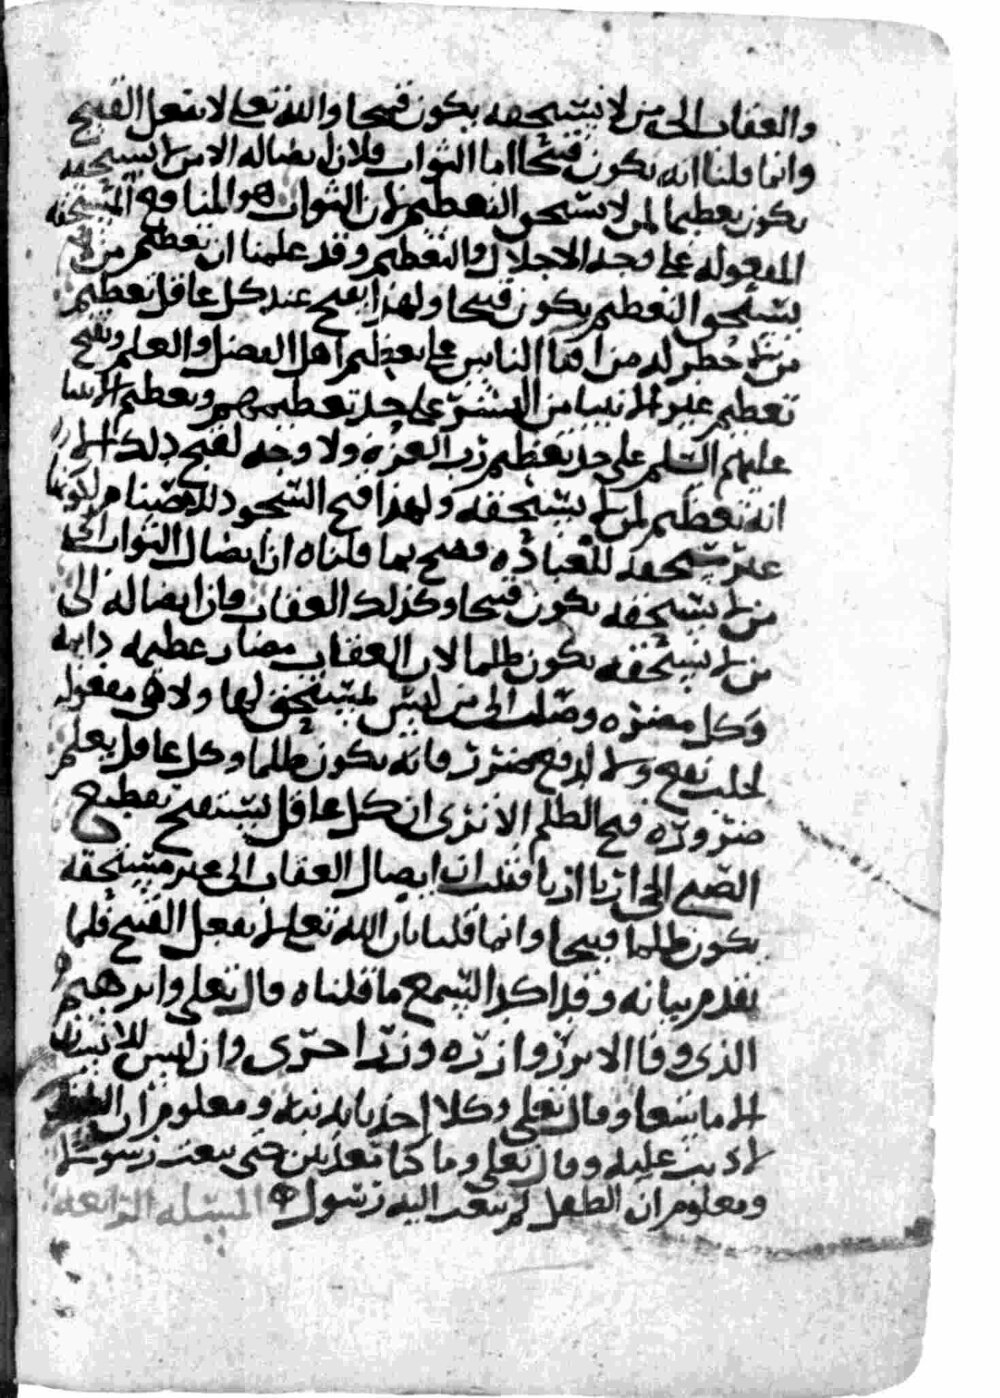 والعقاب الى من لا يستحقه يكون قبيحا والله تعلى لا يفعل القبيح
وانما قلنا انه يكون قبيحا اما الثواب فلان ايصاله الا من لا يستحقه
يكون تعظيما لمن لا يستحق التعظيم لان الثواب هو المنافع المستحقه
المفعوله على وجه الاجلال والتعظيم وقد علمنا ان تعظيم من لا
يستحق التعظيم يكون قبيحا ولهذا يقبح عند كل عاقل تعظيم
من لا خطر له من افنا الناس على تعظيم اهل الفضل والعلم ويقبح
تعظيم غير الانبيا من البشر على حد تعظيمهم وتعظيم الانبيا
عليهم السلم على حد تعظيم رب العزه ولا وجه لقبح ذلك الا
انه تعظيم لمن لا يستحقه ولهذا قبح السجود للاصنام لكونها
غير مستحقه للعباده فصح بما قلناه ان ايصال الثواب الى
من لا يستحقه يكون قبيحا وكذلك العقاب فان ايصاله الى
من لا يستحقه يكون ظلما لان العقاب مضار عظيمه دايمه
وكل مضره وصلت الى من ليس بمستحق لها ولا هي مفعوله
لجلب نفع ولا لدفع ضرر فانه يكون ظلما وكل عاقل يعلم
ضروره قبح الظلم الا ترى ان كل عاقل يستقبح تقطيع
الصبي الى ارباً ارباً فثبت ان ايصال العقاب الى غير مستحقه
يكون ظلما قبيحا وانما قلنا بان الله تعلى لا يفعل القبيح فلما
تقدم بيانه وقد اكد السمع ما قلناه قال تعلى وابرهيم
الذي وفا الا تزر وازره وزر اخرى وان ليس للانسان
الا ما سعا وقال تعلى وكلا اخذنا بذنبه ومعلوم ان الطفل
لا ذنب عليه وقال تعلى وما كنا معذبين حتى نبعث رسولا
ومعلوم ان الطفل لم يبعث اليه رسول المسئله الرابعه